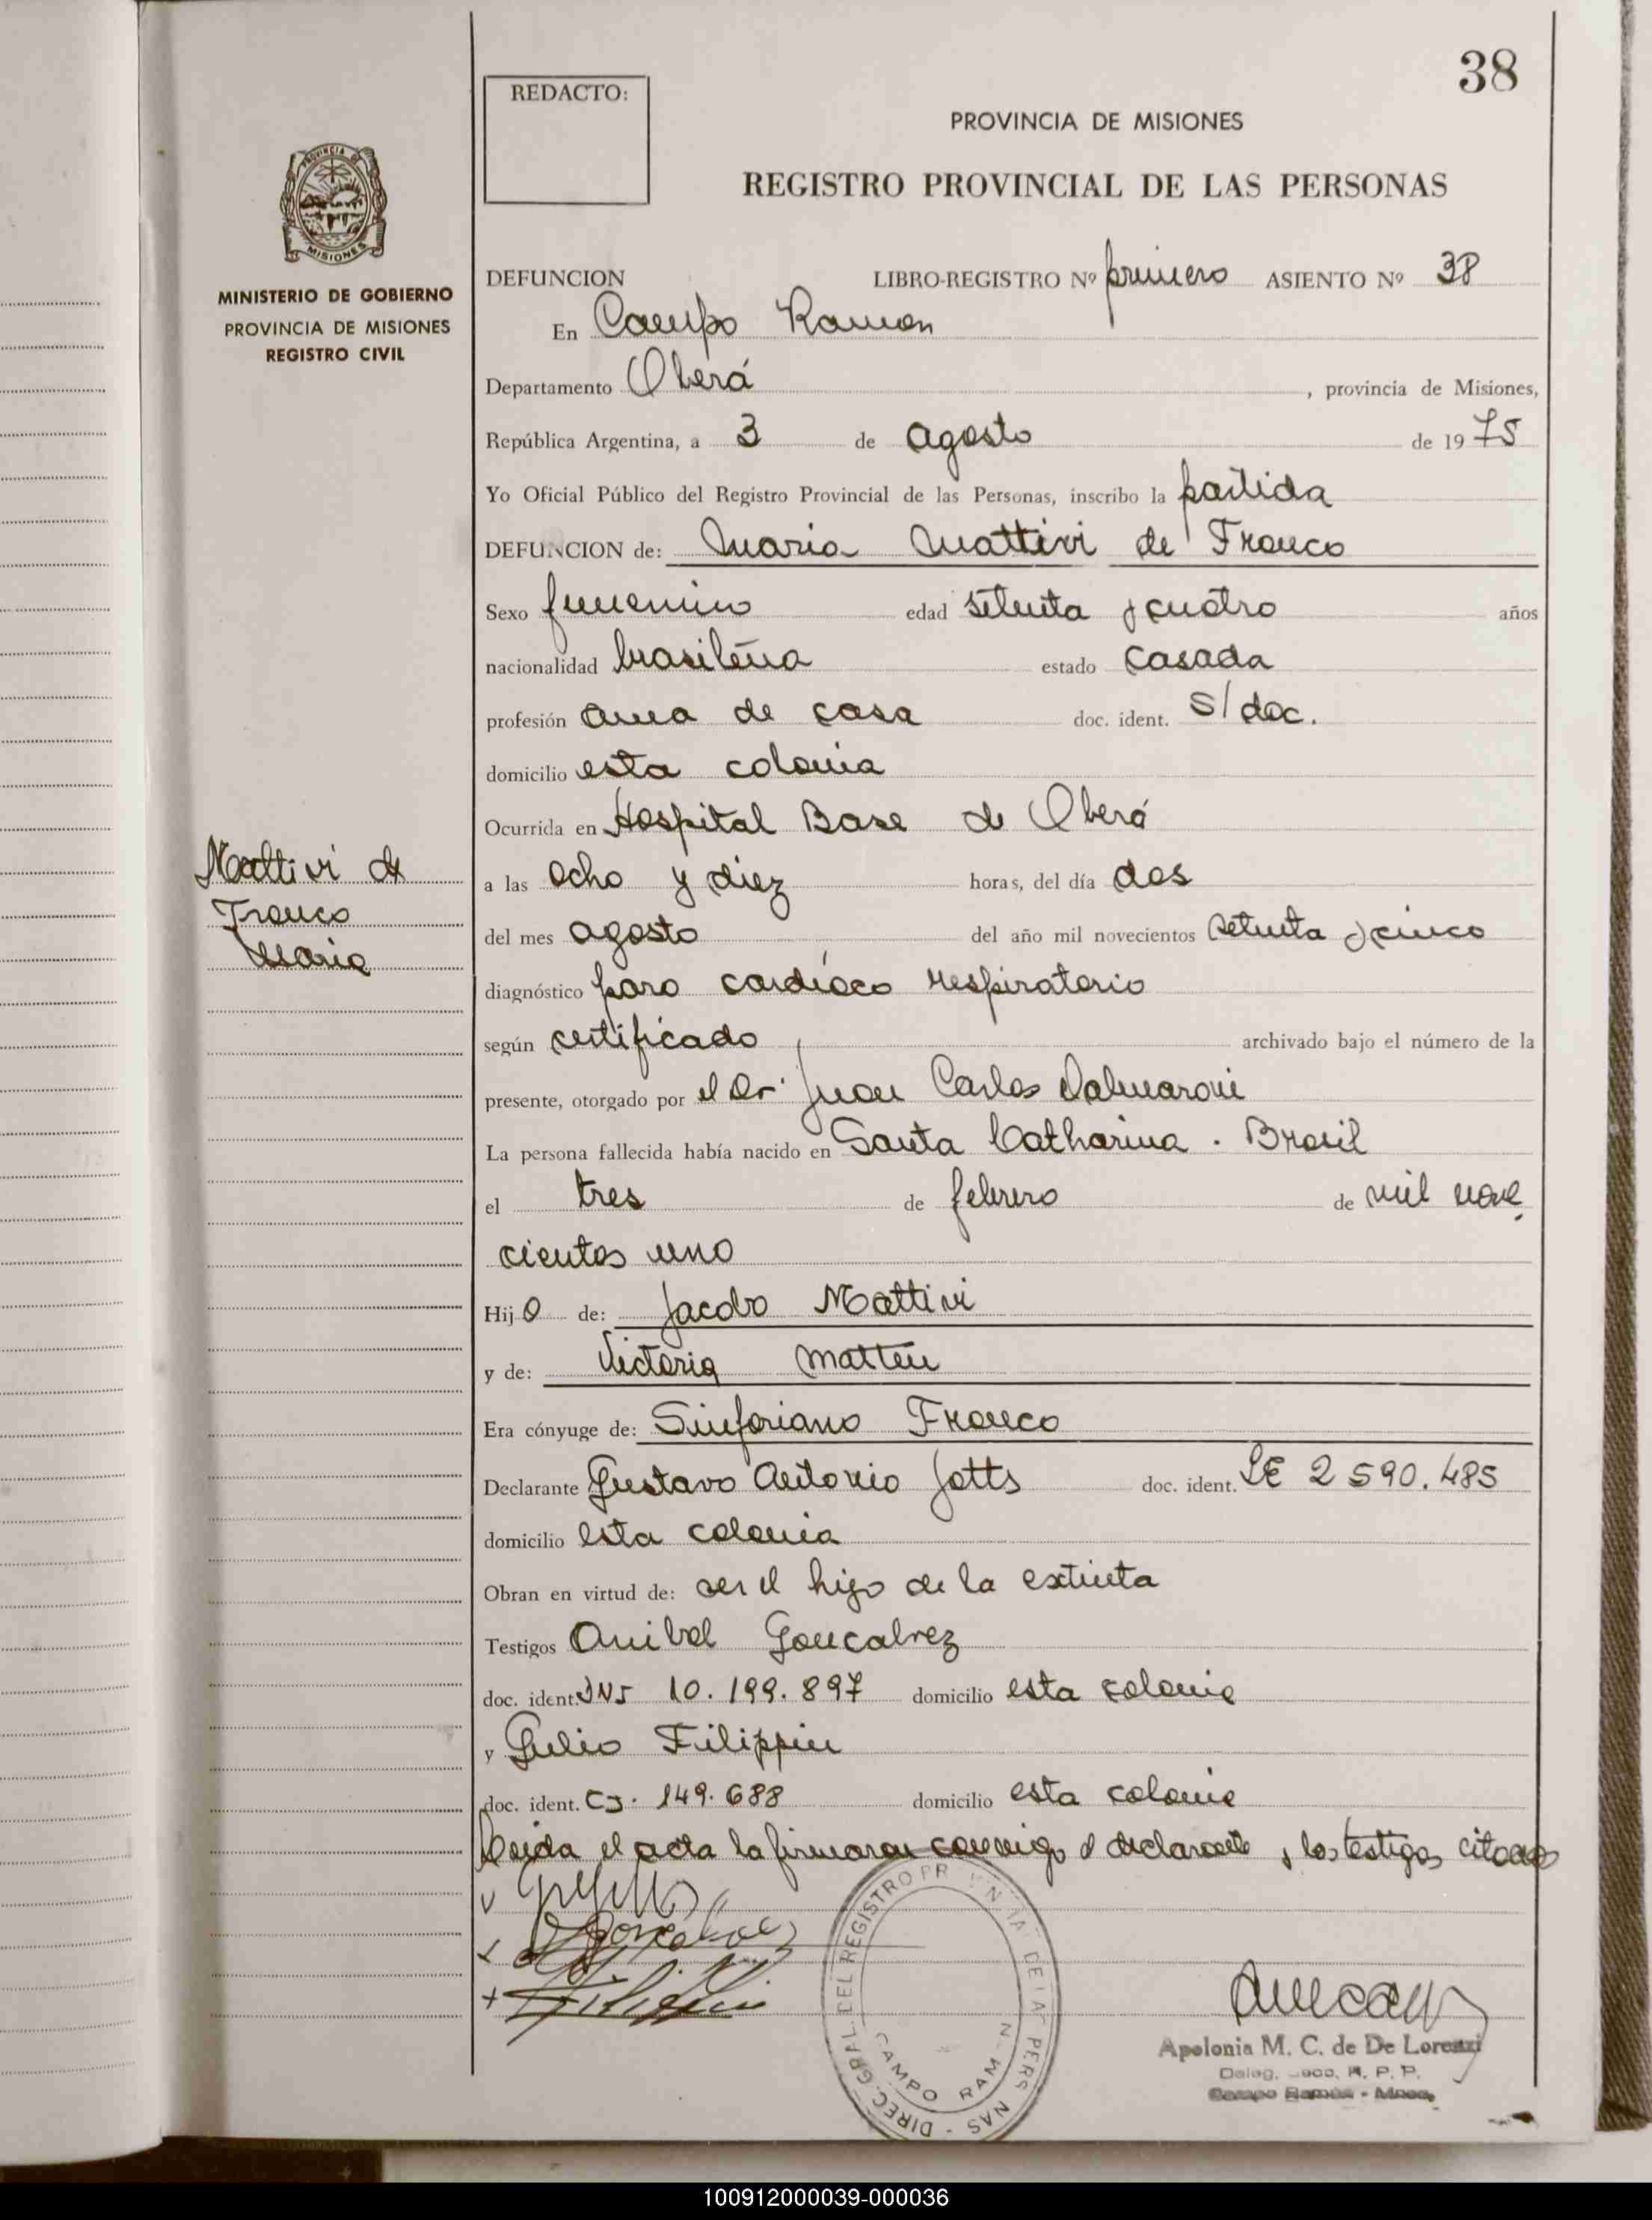 38
REDACTO:
PROVINCIA DE MISIONES
REGISTRO PROVINCIAL DE LAS PERSONAS
MISIONES
MINISTERIO DE GOBIERNO
PROVINCIA DE MISIONES
REGISTRO CIVIL
DEFUNCION LIBRO-REGISTRO Nº primero ASIENTO Nº 38
En Campo Ramon
Departamento Oberá, provincia de Misiones,
República Argentina, a 3 de agosto de 1975
Yo Oficial Público del Registro Provincial de las Personas, inscribo la partida
DEFUNCION de: Maria Mattivi de Franco
Sexo femenino edad setenta y cuatro años
nacionalidad brasileña estado casada
profesión ama de casa doc. ident. S/doc.
domicilio esta colonia
Ocurrida en Hospital Base de Oberá
Mattivi de
Franco
Maria
a las ocho y diez horas, del día dos
del mes agosto del año mil novecientos setenta y cinco
diagnóstico paro cardíaco respiratorio
según certificado archivado bajo el número de la
presente, otorgado por el Dr. Juan Carlos Dalmaroni
La persona fallecida había nacido en Santa Catharina. Brasil
el tres de febrero de mil nove
cientos uno
Hija de: Jacobo Mattivi
y de: Victoria
Era cónyuge de: Sinforiano Franco
Declarante Gustavo Antonio doc. ident. LE 2 590.485
domicilio esta colonia
Obran en virtud de: ser el hijo de la extinta
Testigos Anibal Goncalvez
doc. ident. DNI 10.199.897 domicilio esta colonia
y Julio Filippin
doc. ident. CI. 149.688 domicilio esta colonia
Leida el acta la firmaran conmigo el declarante y los testigos citados
DIREC. GRAL. DEL REGISTRO PROVINCIAL DE LAS PERSONAS
CAMPO RAMON
Apolonia M. C. de De Lorenzi
Campo Ramón - Mnes.
100912000039-000036